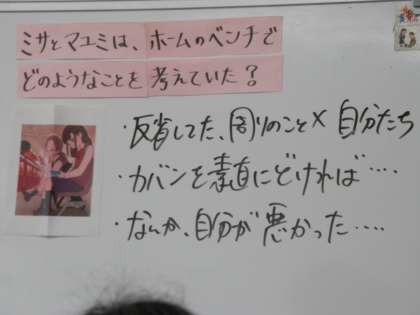 ミサとマユミは、ホームのベンチで
どのようなことを考えていた?
・反省してた、周りのこと×自分たち
・カバンを素直にどければ・・・・
・なんか、自分が悪かった・・・・